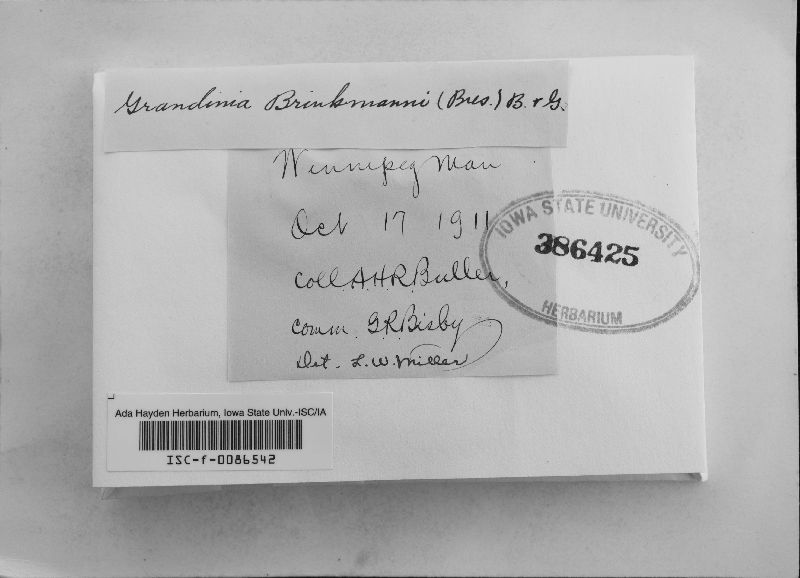 Grandinia Brinkmanni (Bres.) B. & G.
Winnipeg Man
Oct 17 1911
Coll. A.H.R. Buller,
Comm. G.R. Bisby
Det. L.W. Miller
IOWA STATE UNIVERSITY
386425
HERBARIUM
Ada Hayden Herbarium, Iowa State Univ.-ISC/IA
ISC-f-0086542